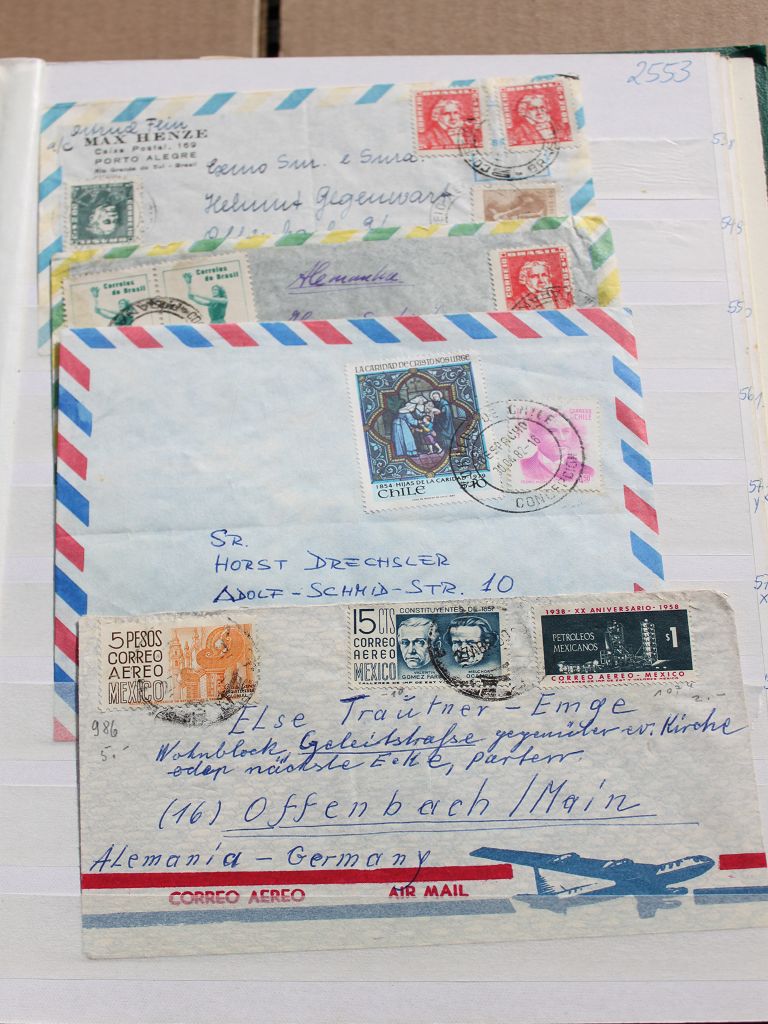 2553
MAX HENZE
Caixa Postal, 169
PORTO ALEGRE
Rio Grande do Sul - Brasil
Exmo Snr. e Snra.
Helmut Gegenwart
BRASIL
Correios do Brasil
Correios do Brasil
Alemanha
CORREIO
549
550
561
LA CARIDAD DE CRISTO NOS URGE
1854 - HIJAS DE LA CARIDAD - 1979
CHILE
$10
CORREOS
CHILE
DE CHILE
CONCEPCION
SR.
HORST DRECHSLER
ADOLF-SCHMID-STR. 10
5 PESOS
CORREO
AEREO
MEXICO
15 CTS
CORREO
AEREO
MEXICO
CONSTITUYENTES DE 1857
GOMEZ FARIAS
MELCHOR
OCAMPO
1938 - XX ANIVERSARIO - 1958
PETROLEOS
MEXICANOS
$1
CORREO AEREO - MEXICO
986
5.-
2.-
Else Trautner-Emge
Wohnblock, Geleitstraße gegenüber ev. Kirche
oder nächste Ecke, Parterr.
(16) Offenbach/Main
Alemania - Germany
CORREO AEREO
AIR MAIL